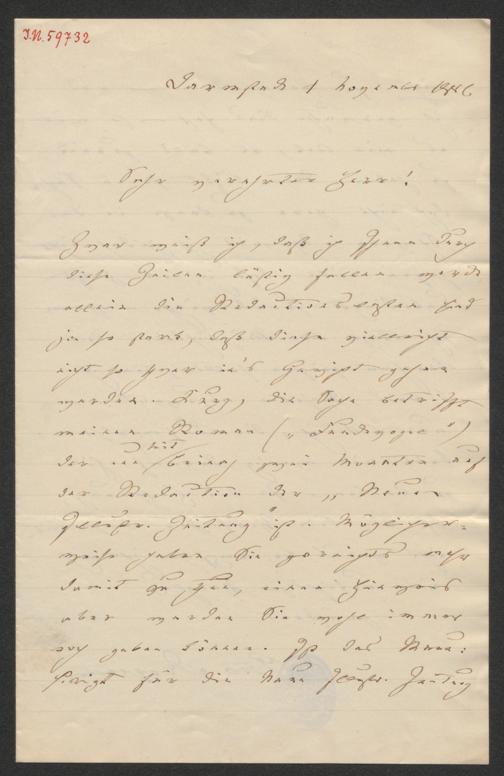 I.N. 59732
Darmstadt 1 November 1886
Sehr verehrter Herr!
Zwar weiß ich, daß ich Ihnen durch
diese Zeilen lästig fallen werde
allein die Redactionslasten sind
ja so stark, daß diese vielleicht
nicht so schwer in's Gewicht gehen
werden. Kurz, die Sache betrifft
meinen Roman („ ")
der nun seit bereits Monaten auf
der Redaction der „Neuen
Illustr. Zeitung" ist. Möglicher-
weise haben Sie gar nichts mehr
damit zu thun, einen
aber werden Sie wohl immer
noch geben können. Ist das Manu-
skript für die Neue Illustr. Zeitung